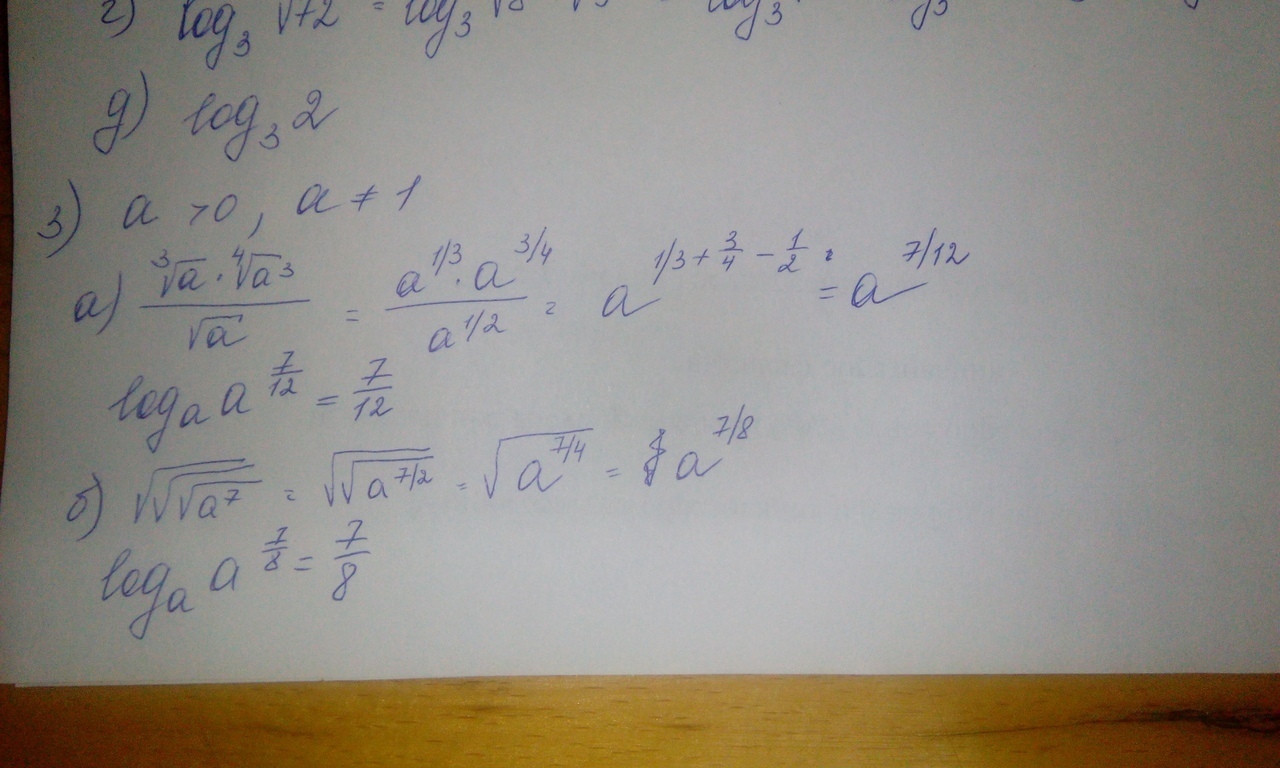 г) log₃ √72 = log₃ √8 log₃ log₃
д) log₃ 2
3) a > 0, a ≠ 1
а) (∛a · ∜a³)/√a = (a^(1/3) · a^(3/4))/a^(1/2) = a^(1/3 + 3/4 − 1/2) = a^(7/12)
logₐ a^(7/12) = 7/12
б) √√√a⁷ = √√a^(7/2) = √a^(7/4) = a^(7/8)
logₐ a^(7/8) = 7/8